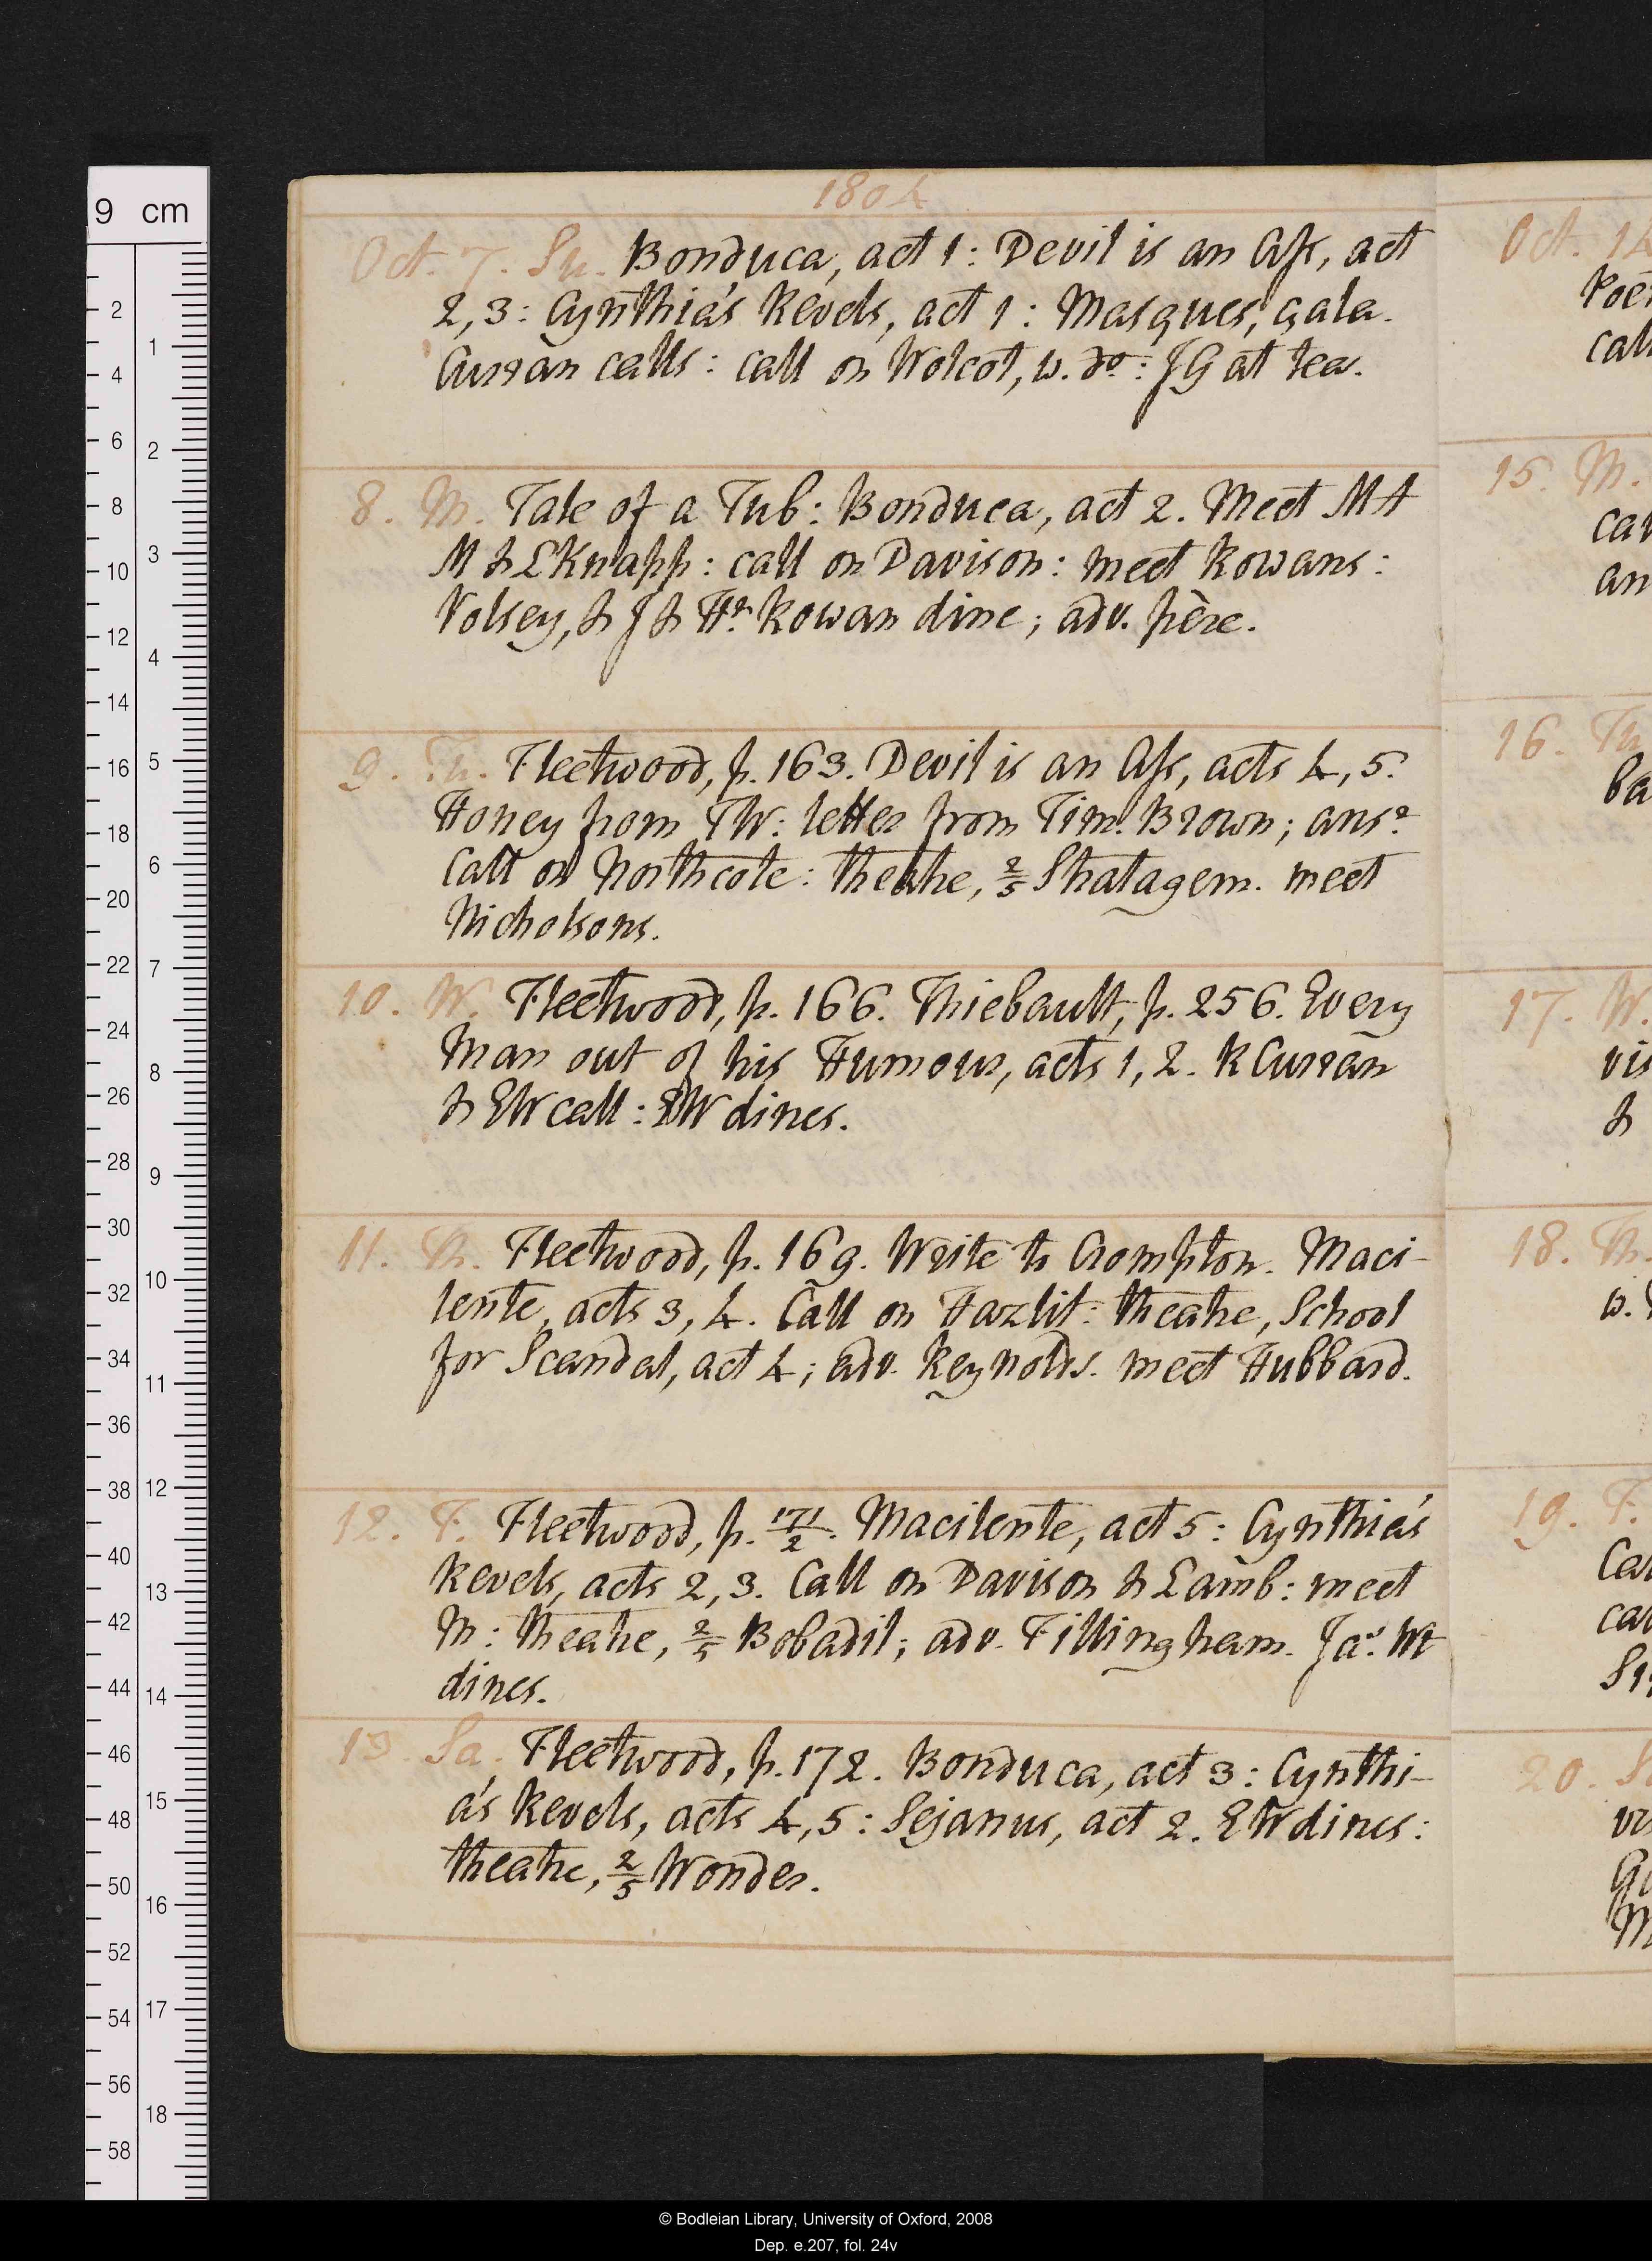 1804
Oct. 7. Su. Bonduca, act 1: Devil is an Ass, act
2, 3: Cynthia's Revels, act 1: Masques, çala.
Curran calls: call on Wolcot, w. do: JG at tea.
8. M. Tale of a Tub: Bonduca, act 2. Meet MA
M & L Knapp: call on Davison: meet Rowans:
Volsey, & J & Hn Rowan dine; adv. père.
9. Tu. Fleetwood, p. 163. Devil is an Ass, acts 4, 5.
Honey from TW: letter from Tim. Brown; ansr
Call on Northcote: theatre, 2/5 Stratagem. meet
Nicholsons.
10. W. Fleetwood, p. 166. Thiebault, p. 256. Every
Man out of his Humour, acts 1, 2. R Curran
& EW call: EW dines.
11. Th. Fleetwood, p. 169. Write to Crompton. Maci-
lente, acts 3, 4. Call on Hazlit: theatre, School
for Scandal, act 4; adv. Reynolds. meet Hubbard.
12. F. Fleetwood, p. 171/2. Macilente, act 5: Cynthia's
Revels, acts 2, 3. Call on Davison & Lamb: meet
M: theatre, 2/5 Bobadil; adv. Fillingham. Jas. Wt
dines.
13. Sa. Fleetwood, p. 172. Bonduca, act 3: Cynthi-
a's Revels, acts 4, 5: Sejanus, act 2. EW dines:
theatre, 2/5 Wonder.
Oct. 14
15. M.
16. Tu
17. W.
18. Th.
19. F.
20. S
9 cm
2 4 6 8 10 12 14 16 18 20 22 24 26 28 30 32 34 36 38 40 42 44 46 48 50 52 54 56 58
1 2 3 4 5 6 7 8 9 10 11 12 13 14 15 16 17 18
© Bodleian Library, University of Oxford, 2008
Dep. e.207, fol. 24v